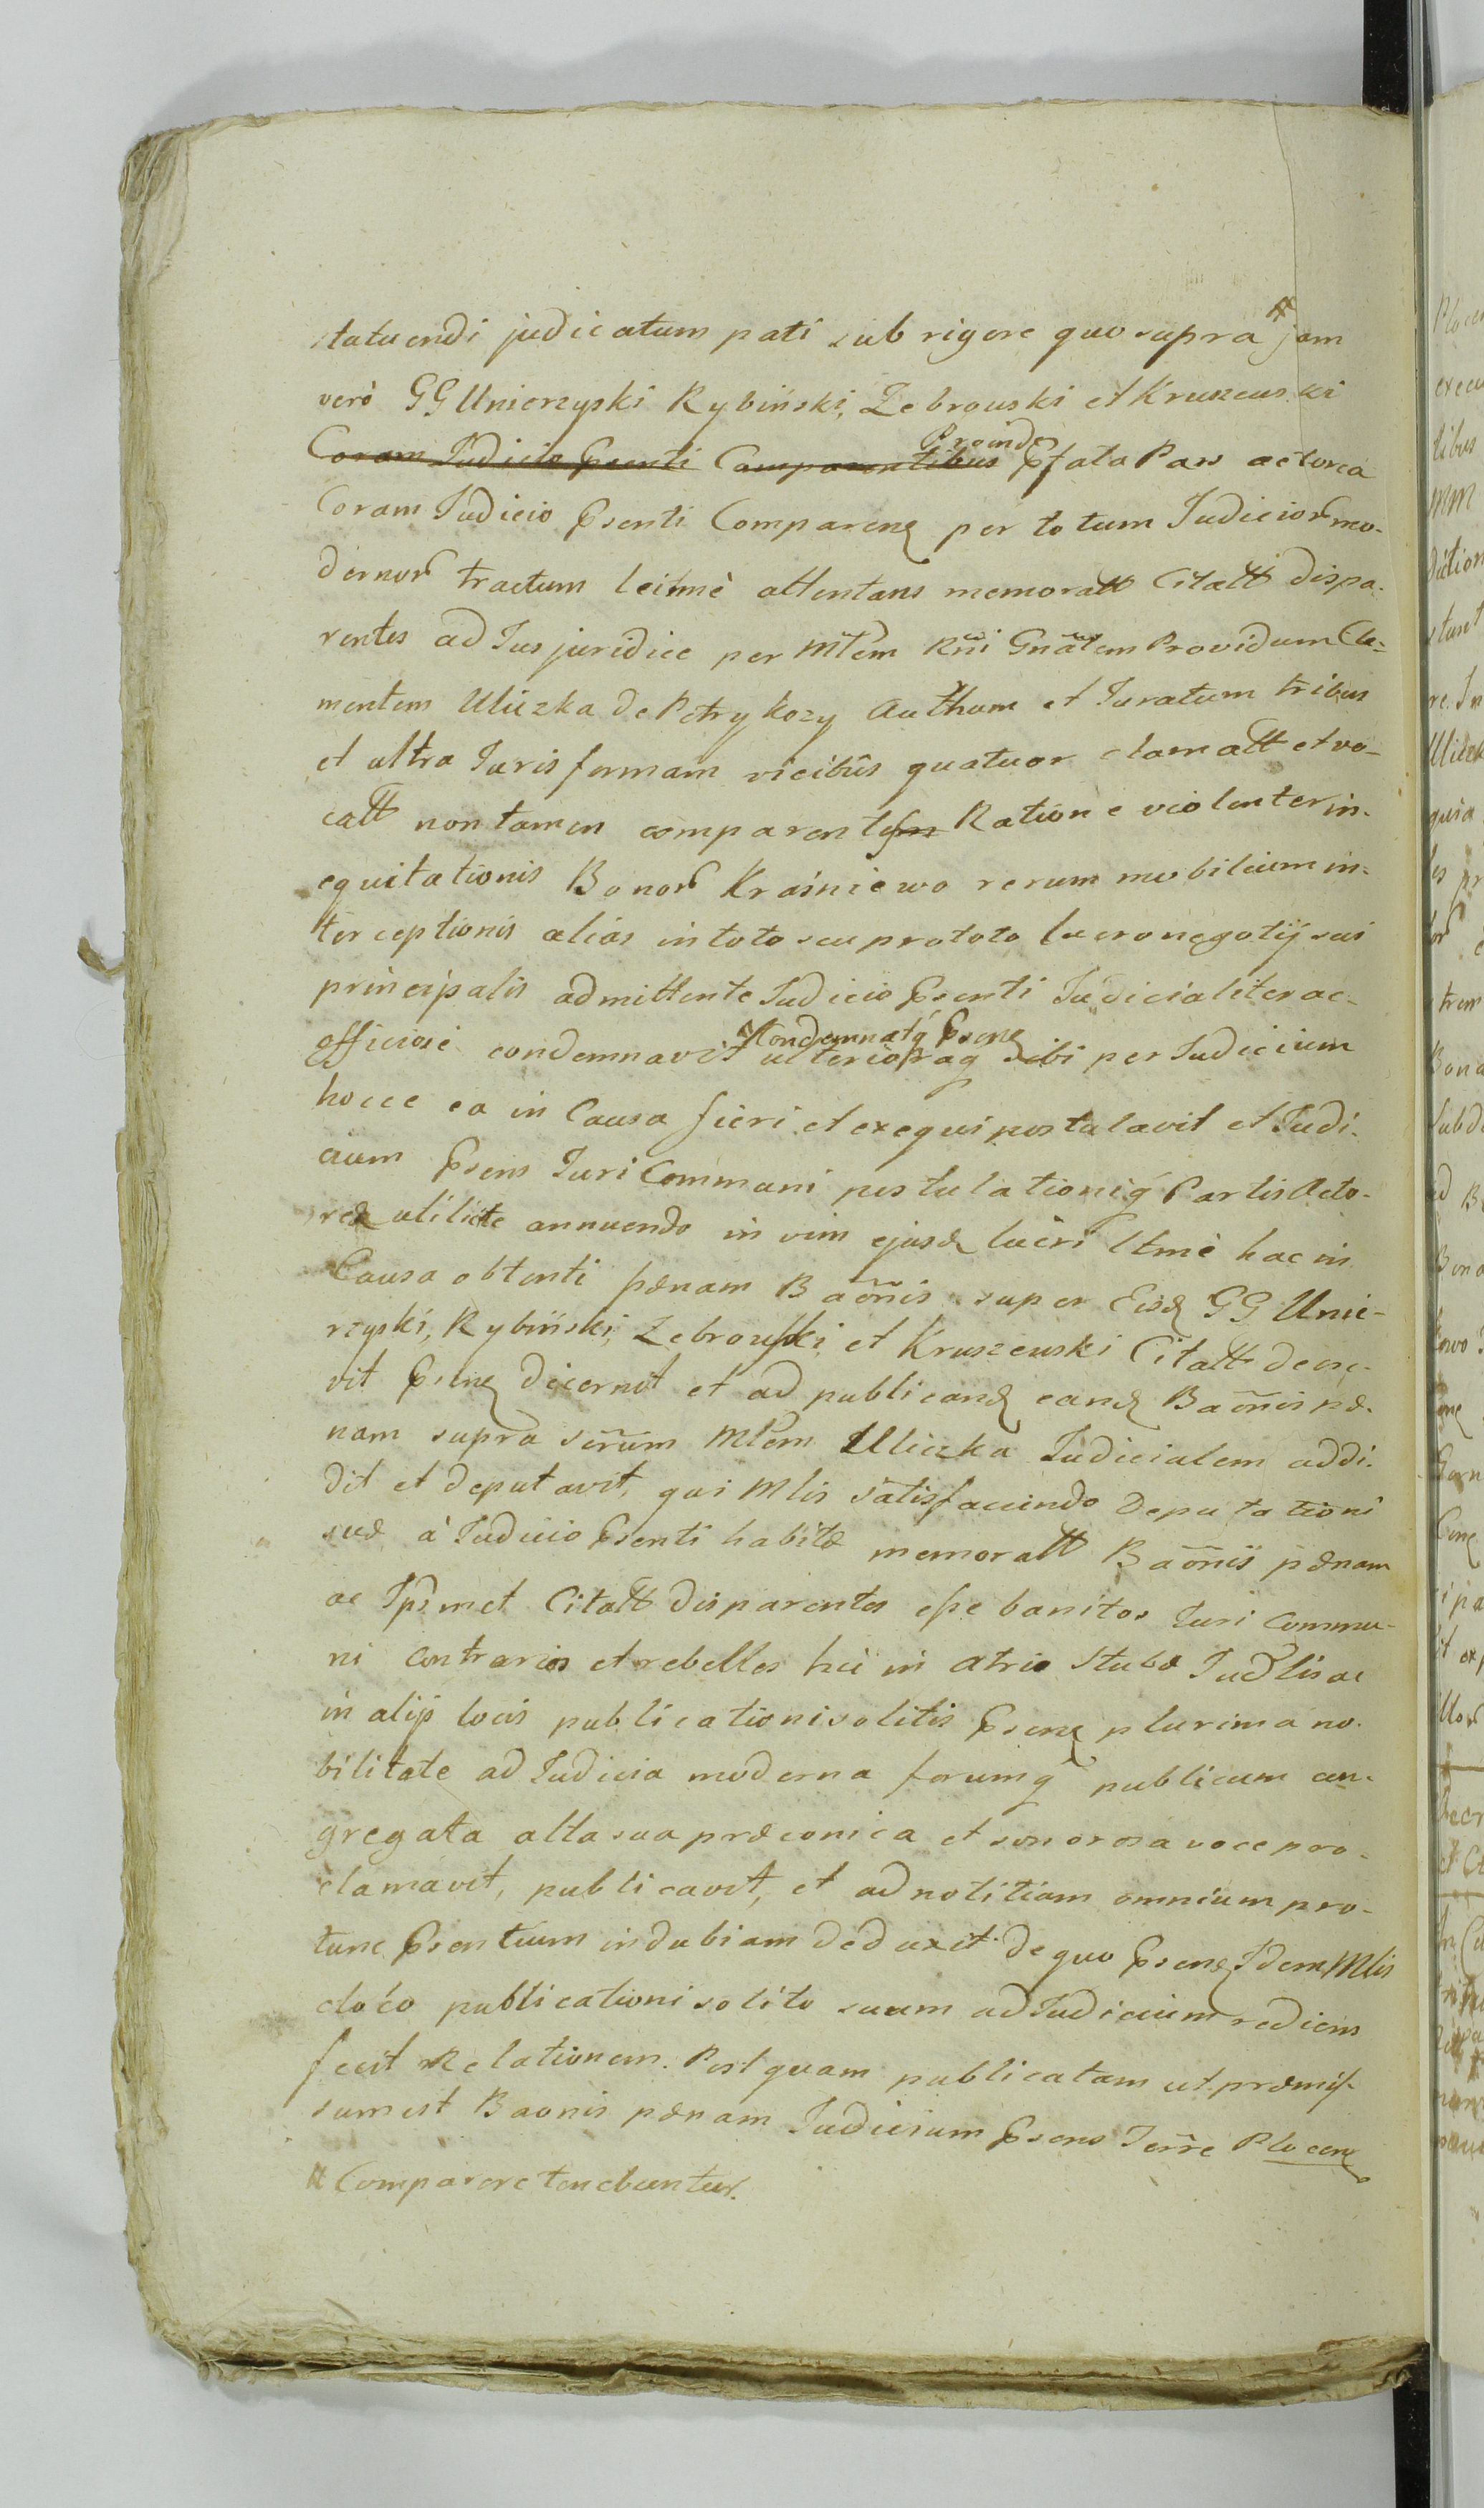 statuendi judicatum pati sub rigore quo supra # jam
verò GG Unierzyski Rybiński, Zebrowski et Kruszewski
Coram Judicio Psenti Comparentibus Proinde Pfata Pars actorea
Coram Judicio Psenti Comparens per totum Judicior mo-
dernor tractum leitmè attentans memoratt Citatt dispa-
rentes ad Jus juridice per Mlem Rñi Gnãlem Providum Cle-
mentem Uliczka de Petrykozy Authum et Juratum tribus
et ultra Juris formam vicibûs quatuor clamatt et vo-
catt non tamen comparentes Ratione violenter in-
equitationis Bonor Kraśniewo rerum mobilium in-
terceptionis alias in toto seu pro toto lucro negotij sui
principalis admittente Judicio Psenti Judicialiter ac
officiose condemnavit Kondemnatq Psens ulterioraq sibi per Judicium
hocce ea in Causa fieri et exequi postulavit et Judi-
cium Psens Juri Communi postulationiq Partis Acto-
reæ utilicte annuendo in vim ejusd lucri ltmè hac in
Causa obtenti pænam Baõnis super Eisd GG Unie-
rzyski, Rybiński, Zebrowski et Kruszewski Citatt decre-
vit Psensq decernit et ad publicand eand Baõnis pæ-
nam supra scrum Mlem Uliczka Judicialem addi-
dit et deputavit, qui Mlis satisfaciendo Deputationi
suæ à Judicio Psenti habitæ memoratt Baõnis pænam
ac Ipsmet Citatt disparentes esse banitos Juri commu-
ni contrarios et rebelles hic in atrio Stubæ Judlis ac
in alijs locis publicationi solitis Psens plurima no-
bilitate ad Judicia moderna forumq publicum con-
gregata alta sua præconica et sonorosa voce pro-
clamavit, publicavit, et ad notitiam omnium pro-
tunc Psentium indubiam deduxit de quo Psens Idem Mlis
eloco publicationi solito suam ad Judicium rediens
fecit Relationem. Postquam publicatam ut præmis-
sum est Baonis pænam Judicium Psens Terre Plocen
# Comparere tenebuntur.